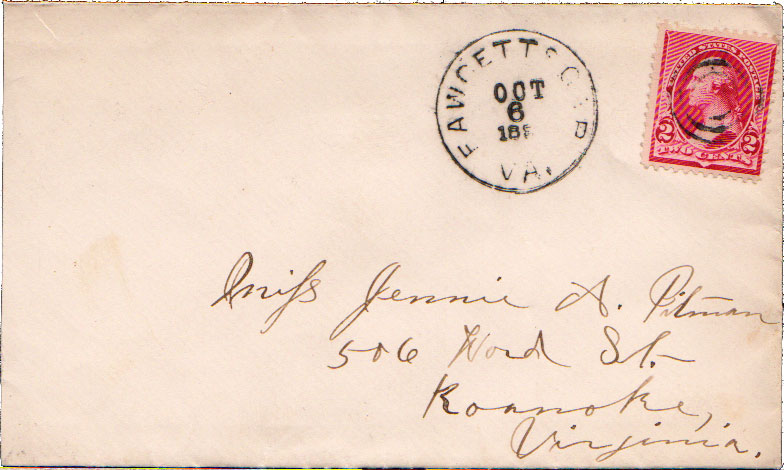 FAWCETTS GAP
OCT
6
VA.
UNITED STATES POSTAGE
2 2
TWO CENTS
Miss Jennie A. Pitman
506 St.
Roanoke,
Virginia.